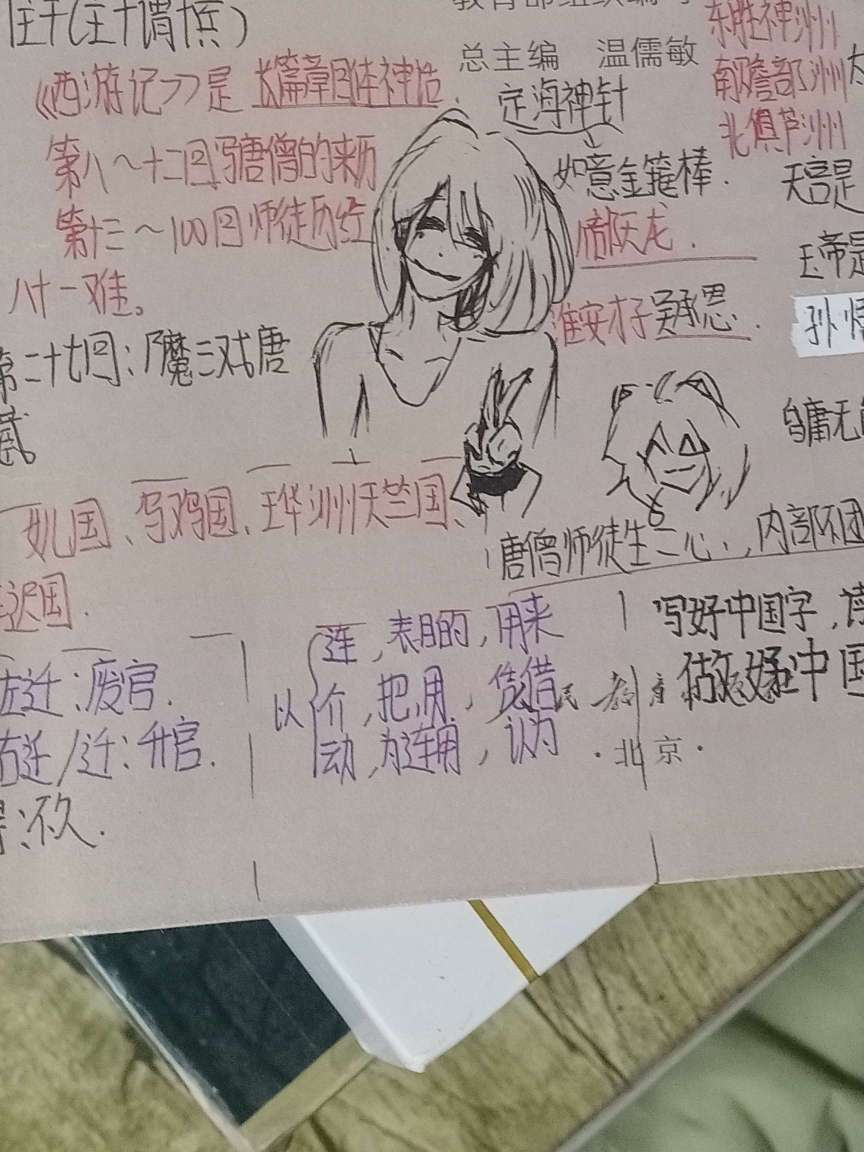 主干(主+谓+宾)
教育部组织编写
总主编 温儒敏
东胜神洲
南赡部洲
北俱芦洲
《西游记》是长篇章回体神话
定海神针
如意金箍棒.
第八~十二回写唐僧的来历
第十三~100回师徒历经
八十一难。
天宫是
玉帝是
淮安才子吴承恩.
第二十七回:尸魔三戏唐
孙悟
昏庸无能
女儿国、乌鸡国、玉华洲天竺国、
唐僧师徒生二心,内部不团
左迁:废官.
右迁/迁:升官.
以
连,表目的,用来
介,把,用,凭借
动,为连用,认为
写好中国字,读
做好中国
·北京·